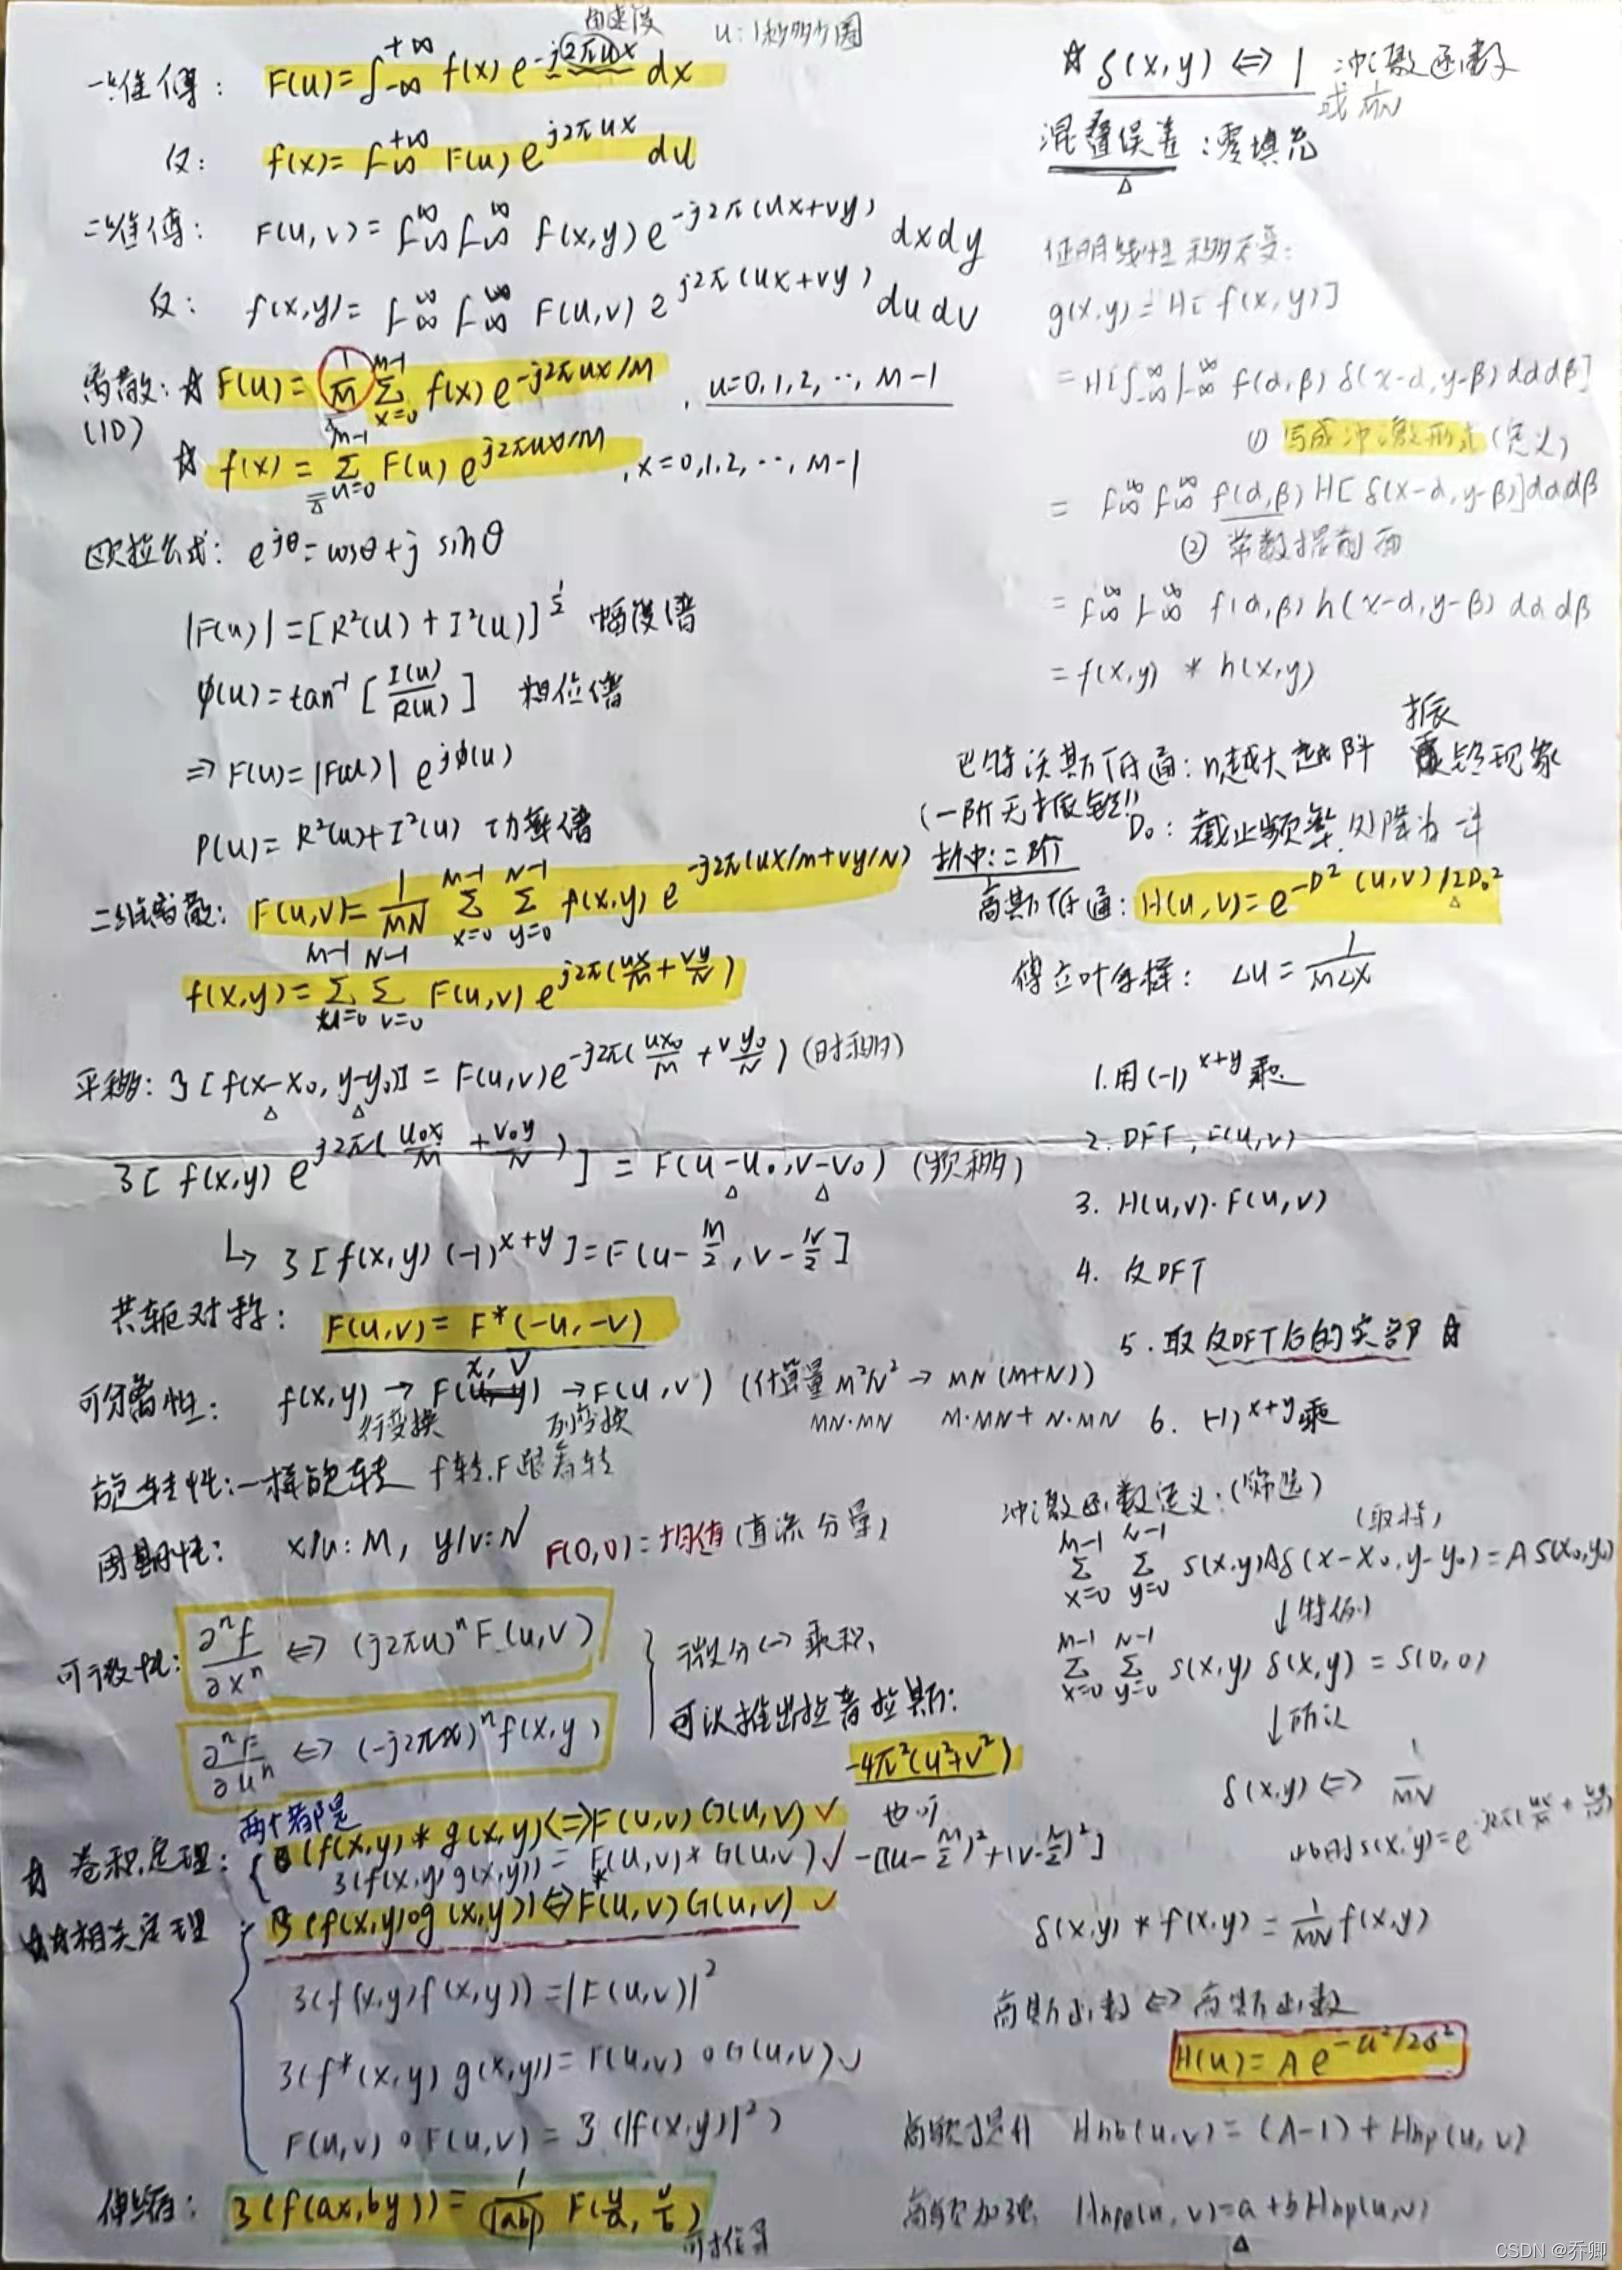 角速度
u:1秒多少圈
一维傅: F(u)=∫-∞+∞ f(x) e-j2πux dx
反: f(x)=∫-∞+∞ F(u) ej2πux du
二维傅: F(u,v)=∫-∞∞∫-∞∞ f(x,y)e-j2π(ux+vy) dxdy
反: f(x,y)=∫-∞∞∫-∞∞ F(u,v) ej2π(ux+vy) dudv
离散:☆ F(u)=1/M Σx=0M-1 f(x) e-j2πux/M , u=0,1,2,…,M-1
(1D)
☆ f(x)=Σu=0M-1 F(u) ej2πux/M , x=0,1,2,…,M-1
欧拉公式: ejθ=cosθ+j sinθ
|F(u)|=[R²(u)+I²(u)]1/2 幅度谱
φ(u)=tan-1[I(u)/R(u)] 相位谱
⇒F(u)=|F(u)| ejφ(u)
P(u)=R²(u)+I²(u) 功率谱
二维离散: F(u,v)=1/MN Σx=0M-1 Σy=0N-1 f(x,y) e-j2π(ux/M+vy/N)
f(x,y)=Σu=0M-1 Σv=0N-1 F(u,v) ej2π(ux/M+vy/N)
平移: ℑ[f(x-x₀,y-y₀)]=F(u,v)e-j2π(ux₀/M+vy₀/N) (时移)
ℑ[f(x,y) ej2π(u₀x/M+v₀y/N)]=F(u-u₀,v-v₀) (频移)
↳ ℑ[f(x,y)(-1)x+y]=F(u-M/2,v-N/2]
共轭对称: F(u,v)=F*(-u,-v)
x,v
可分离性: f(x,y)→F(u,y)→F(u,v) (计算量M²N²→MN(M+N))
行变换 列变换 MN·MN M·MN+N·MN
旋转性:一样旋转 f转,F跟着转
周期性: x/u:M, y/v:N F(0,0)=均值(直流分量)
可微性: ∂ⁿf/∂xⁿ⇔(j2πu)ⁿF(u,v)
∂ⁿF/∂uⁿ⇔(-j2πx)ⁿf(x,y)
微分↔乘积,
可以推出拉普拉斯:
-4π²(u²+v²)
也可
-[(u-M/2)²+(v-N/2)²]
两个都是
☆ 卷积定理: (f(x,y)*g(x,y)⇔F(u,v)G(u,v) ✓
ℑ(f(x,y)g(x,y))=F(u,v)*G(u,v) ✓
☆☆相关定理 ℑ(f(x,y)∘g(x,y))⇔F*(u,v)G(u,v) ✓
ℑ(f(x,y)f(x,y))=|F(u,v)|²
ℑ(f*(x,y)g(x,y))=F(u,v)∘G(u,v) ✓
F(u,v)∘F(u,v)=ℑ(|f(x,y)|²)
伸缩: ℑ(f(ax,by))=1/|ab| F(u/a,v/b)
☆ δ(x,y)⇔1 冲激函数
或1/MN
混叠误差:零填充
证明线性移不变:
g(x,y)=H[f(x,y)]
=H[∫-∞∞∫-∞∞ f(α,β)δ(x-α,y-β)dαdβ]
①写成冲激形式(定义)
=∫-∞∞∫-∞∞ f(α,β)H[δ(x-α,y-β)]dαdβ
②常数提前面
=∫-∞∞∫-∞∞ f(α,β)h(x-α,y-β)dαdβ
=f(x,y)*h(x,y)
振
巴特沃斯低通:n越大越阶 铃现象
(一阶无振铃!! D₀:截止频率,处降为一半
折中:二阶
高斯低通: H(u,v)=e-D²(u,v)/2D₀²
傅立叶采样: Δu=1/MΔx
1.用(-1)x+y乘
2. DFT, F(u,v)
3. H(u,v)·F(u,v)
4. 反DFT
5.取反DFT后的实部☆
6. (-1)x+y乘
冲激函数定义:(筛选)
(取样)
Σx=0M-1 Σy=0N-1 s(x,y)Aδ(x-x₀,y-y₀)=As(x₀,y₀)
↓(特例)
Σx=0M-1 Σy=0N-1 s(x,y)δ(x,y)=s(0,0)
↓所以
δ(x,y)⇔1/MN
s(x,y)=e-j2π(ux/M+vy/N)
δ(x,y)*f(x,y)=1/MN f(x,y)
高斯函数⇔高斯函数
H(u)=Ae-u²/2σ²
高频提升 Hhb(u,v)=(A-1)+Hhp(u,v)
高频加强 Hhpe(u,v)=a+bHhp(u,v)
CSDN @乔卿